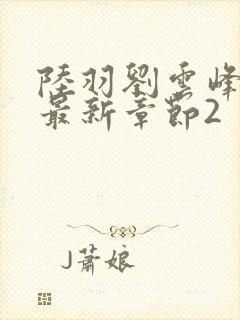 陸羽劉雲峰
最新章節2
J蕭娘